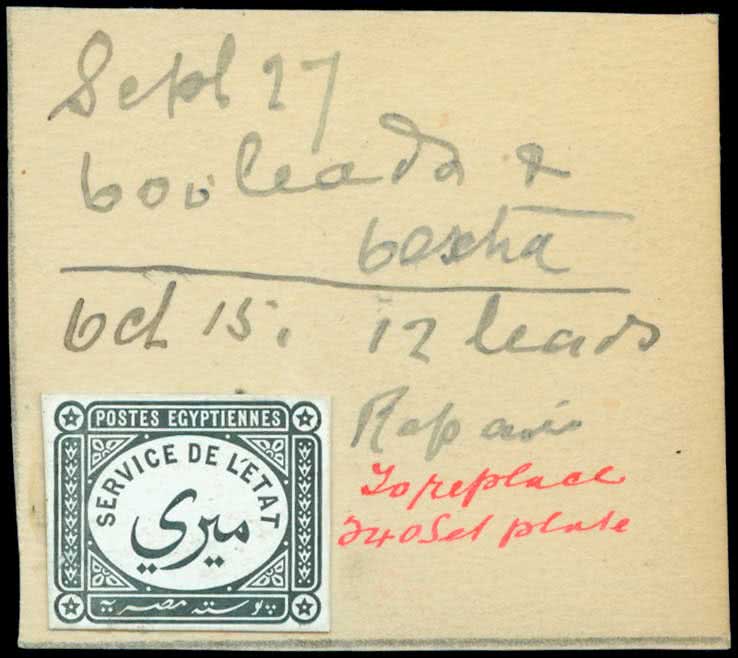 Sept 27
600 leads &
6 extra
Oct 15. 12 leads
Repair
To replace
240 Set plate
POSTES EGYPTIENNES
SERVICE DE L'ETAT
ميري
پوسته مصريه